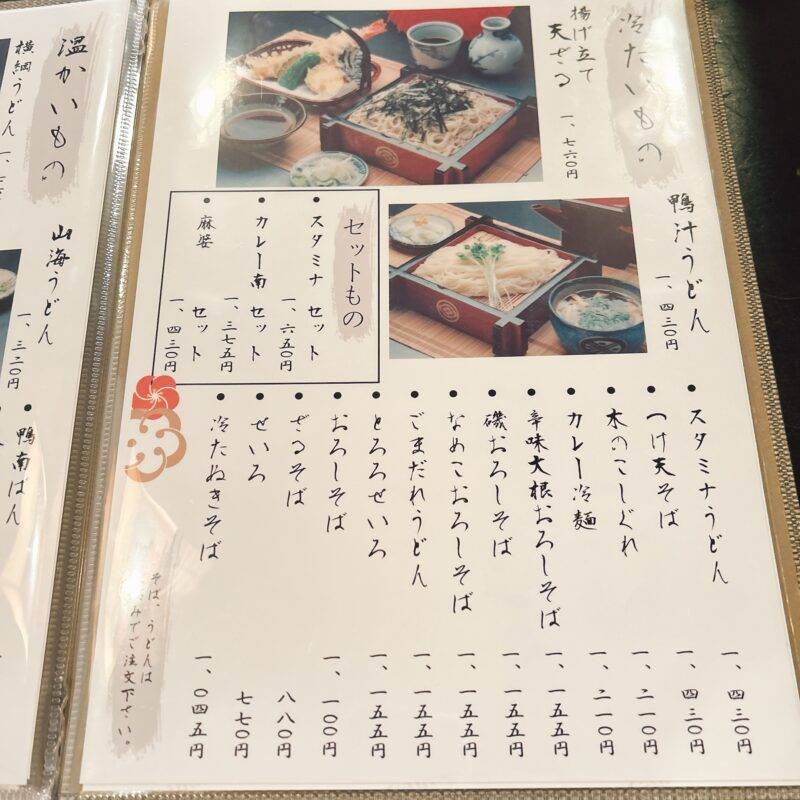 冷たいもの
揚げ立て
天ざる 一、七六〇円
鴨汁うどん 一、四三〇円
セットもの
・スタミナ セット 一、六五〇円
・カレー南 セット 一、三七五円
・麻婆 セット 一、四三〇円
・スタミナうどん 一、四三〇円
・つけ天そば 一、四三〇円
・木のこしぐれ 一、二一〇円
・カレー冷麺 一、二一〇円
・辛味大根おろしそば 一、一五五円
・磯おろしそば 一、一五五円
・なめこおろしそば 一、一五五円
・ごまだれうどん 一、一五五円
・とろろせいろ 一、一五五円
・おろしそば 一、一〇〇円
・ざるそば 八八〇円
・せいろ 七七〇円
・冷たぬきそば 一、〇四五円
そば、うどんは
みでご注文下さい。
温かいもの
横綱うどん
山海うどん 一、三二〇円
・鴨南ばん